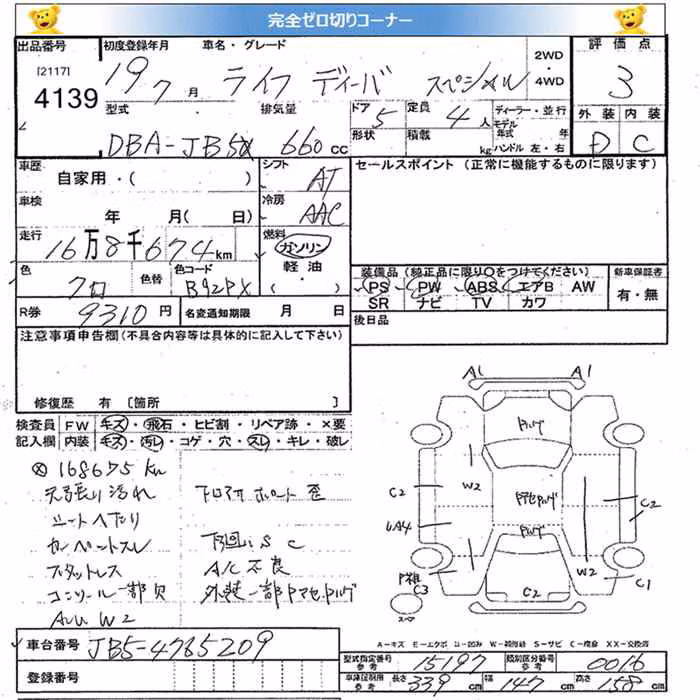 完全ゼロ切りコーナー
出品番号 [2117] 4139
初度登録年月 19 7 月 車名・グレード ライフ ディーバ スペシャル 2WD・4WD
評価点 3
型式 DBA-JB5 排気量 660 cc ドア 5 形状 定員 4 人 積載 kg ディーラー・並行 モデル年式 年 ハンドル 左・右
外装 D 内装 C
車歴 自家用・( ) シフト AT
セールスポイント (正常に機能するものに限ります)
車検 年 月( 日) 冷房 AAC
走行 16万8千674km 燃料 ガソリン 軽油 ・( )
色 クロ 色替 色コード B92PX
装備品(純正品に限り○をつけてください) 新車保証書
PS PW ABS エアB AW 有・無
SR ナビ TV カワ
R券 9310 円 名変通知期限 月 日 後日品
注意事項申告欄(不具合内容等は具体的に記入して下さい)
修復歴 有 [箇所 ]
検査員 FW キズ・飛石・ヒビ割・リペア跡・×要
記入欄 内装 キズ・汚レ・コゲ・穴・スレ・キレ・破レ
168675 Km
天張り汚れ
シートヘたり
カーペットスレ 下回り S C
スタットレス A/C 不良
コンソール一部欠
W2
A1 A1
C2 W2 C2
W2
C3 C2 C1
スペア
A-キズ E-エクボ U-凹み W-補修跡 S-サビ C-腐食 XX-交換済
車台番号 JB5-4785209
登録番号
型式指定番号 参考 15197 類別区分番号 参考 0016
車庫証明用 参考 長さ 339 cm 幅 147 cm 高さ 158 cm